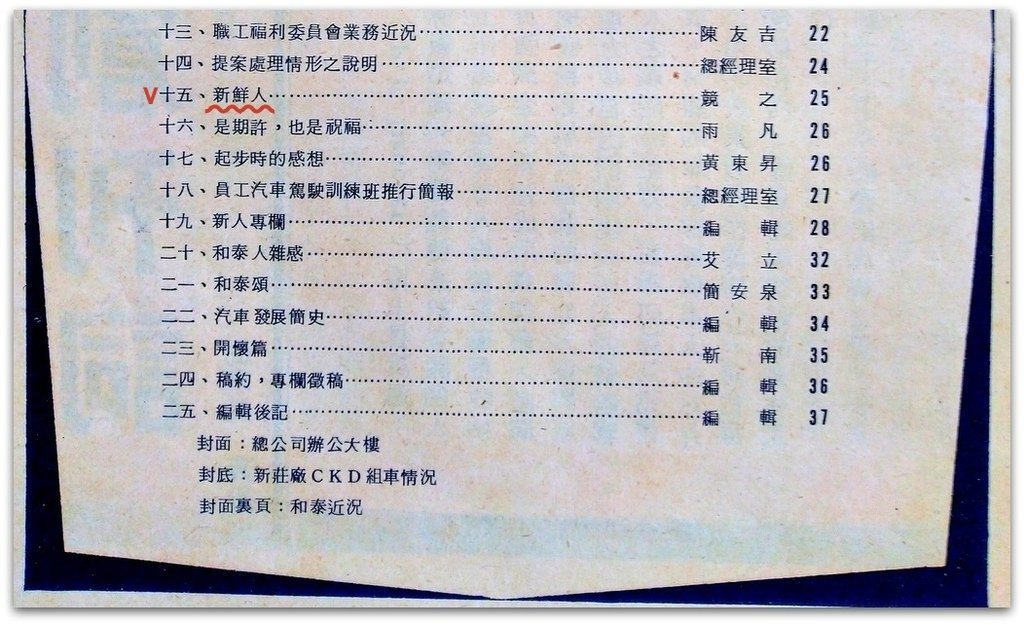 十三、職工福利委員會業務近況⋯⋯⋯⋯⋯⋯陳友吉 22
十四、提案處理情形之說明⋯⋯⋯⋯⋯⋯總經理室 24
V十五、新鮮人⋯⋯⋯⋯⋯⋯競之 25
十六、是期許，也是祝福⋯⋯⋯⋯⋯⋯雨凡 26
十七、起步時的感想⋯⋯⋯⋯⋯⋯黃東昇 26
十八、員工汽車駕駛訓練班推行簡報⋯⋯⋯⋯⋯⋯總經理室 27
十九、新人專欄⋯⋯⋯⋯⋯⋯編輯 28
二十、和泰人雜感⋯⋯⋯⋯⋯⋯艾立 32
二一、和泰頌⋯⋯⋯⋯⋯⋯簡安泉 33
二二、汽車發展簡史⋯⋯⋯⋯⋯⋯編輯 34
二三、開懷篇⋯⋯⋯⋯⋯⋯靳南 35
二四、稿約，專欄徵稿⋯⋯⋯⋯⋯⋯編輯 36
二五、編輯後記⋯⋯⋯⋯⋯⋯編輯 37
封面：總公司辦公大樓
封底：新莊廠CKD組車情況
封面裏頁：和泰近況